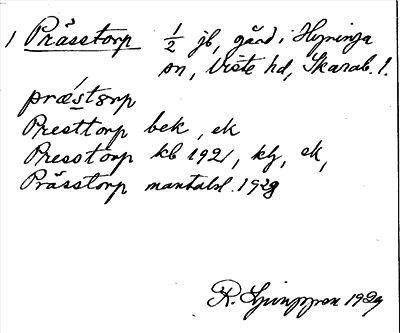 1 Prässtorp 1/2 jb, gård i Hyringa
sn, Viste hd, Skarab. l.
præ´stɷrp
Presttorp bek, ek
Presstorp kb 1921, kg, ek,
Prässtorp mantalsl. 1929
R. 1929